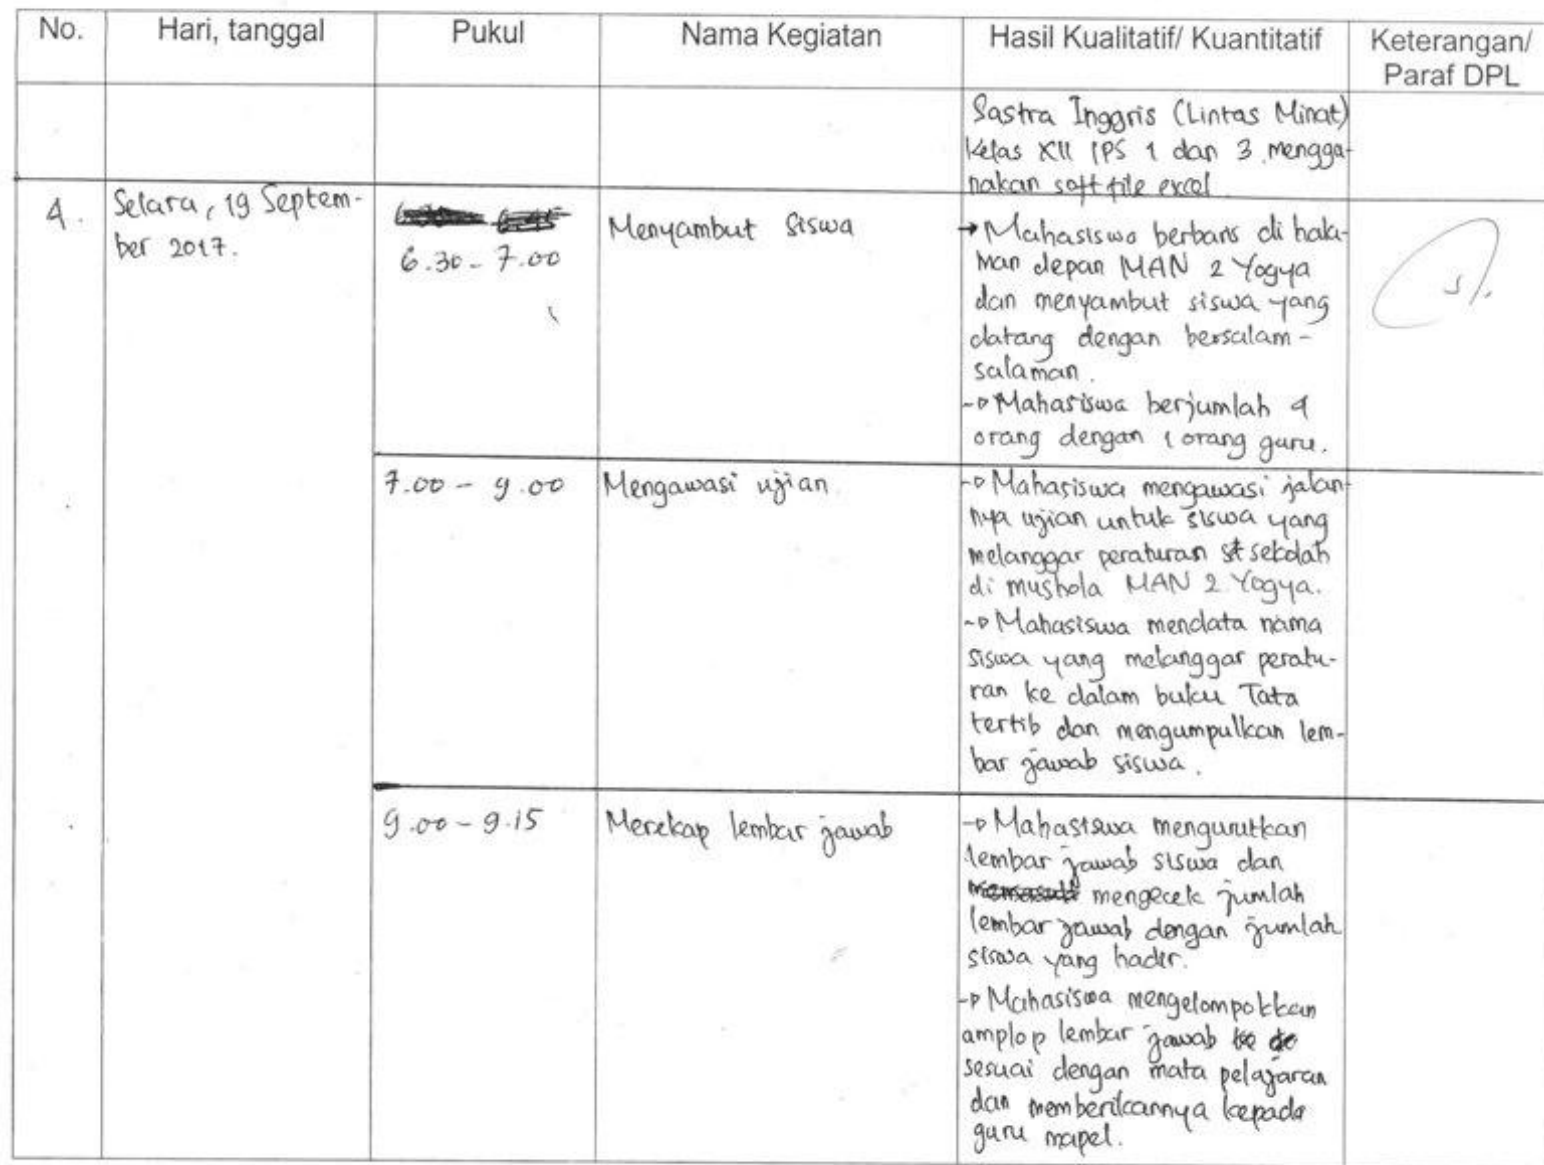 No. Hari, tanggal Pukul Nama Kegiatan Hasil Kualitatif/ Kuantitatif Keterangan/
Paraf DPL
Sastra Inggris (Lintas Minat)
Kelas XII IPS 1 dan 3 mengga-
nakan soft file excel.
4. Selasa, 19 Septem-
ber 2017.
6.30 - 7.00
Menyambut siswa
→ Mahasiswa berbaris di hala-
man depan MAN 2 Yogya
dan menyambut siswa yang
datang dengan bersalam-
salaman.
→ Mahasiswa berjumlah 4
orang dengan 1 orang guru.
7.00 - 9.00 Mengawasi ujian
→ Mahasiswa mengawasi jalan-
nya ujian untuk siswa yang
melanggar peraturan sekolah
di mushola MAN 2 Yogya.
→ Mahasiswa mendata nama
siswa yang melanggar peratu-
ran ke dalam buku Tata
tertib dan mengumpulkan lem-
bar jawab siswa.
9.00 - 9.15 Merekap lembar jawab
→ Mahasiswa mengurutkan
lembar jawab siswa dan
mengecek jumlah
lembar jawab dengan jumlah
siswa yang hadir.
→ Mahasiswa mengelompokkan
amplop lembar jawab
sesuai dengan mata pelajaran
dan memberikannya kepada
guru mapel.